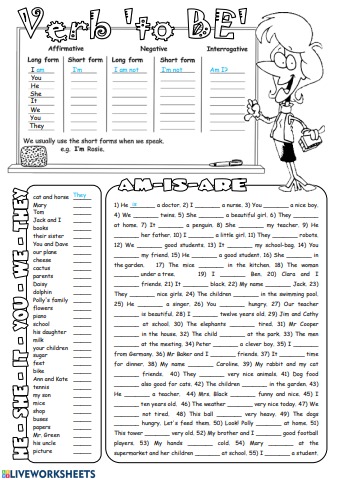 Verb 'to BE'
Affirmative Negative Interrogative
Long form Short form Long form Short form
I am I'm I am not I'm not Am I?
You
He
She
It
We
You
They
We usually use the short forms when we speak.
e.g. I'm Rosie.
HE-SHE-IT-YOU-WE-THEY
cat and horse They
Mary
Tom
Jack and I
books
their sister
You and Dave
our plane
cheese
cactus
parents
Daisy
dolphin
Polly's family
flowers
piano
school
his daughter
milk
your children
sugar
feet
bike
Ann and Kate
tennis
my son
mice
shop
buses
papers
Mr. Green
his uncle
picture
AM-IS-ARE
1) He is a doctor. 2) I ______ a nurse. 3) You ______ a nice boy.
4) We ______ twins. 5) She ______ a beautiful girl. 6) They ______
at home. 7) It ______ a penguin. 8) She ______ my teacher. 9) He
______ her father. 10) I ______ a little girl. 11) They ______ robots.
12) We ______ good students. 13) It ______ my school-bag. 14) You
______ my friend. 15) He ______ a good student. 16) She ______ in
the garden. 17) The mice ______ in the kitchen. 18) The woman
______ under a tree. 19) I ______ Ben. 20) Clara and I
______ friends. 21) It ______ black. 22) My name ______ Jack. 23)
They ______ nice girls. 24) The children ______ in the swimming pool.
25) He ______ a singer. 26) You ______ hungry. 27) Our teacher
______ is beautiful. 28) I ______ twelve years old. 29) Jim and Cathy
______ at school. 30) The elephants ______ tired. 31) Mr Cooper
______ in the house. 32) The child ______ at the park. 33) The men
______ at the meeting. 34) Peter ______ a clever boy. 35) I ______
from Germany. 36) Mr Baker and I ______ friends. 37) It ______ time
for dinner. 38) My name ______ Caroline. 39) My rabbit and my cat
______ friends. 40) They ______ very nice animals. 41) Dog food
______ also good for cats. 42) The children ______ in the garden. 43)
He ______ a teacher. 44) Mrs. Black ______ funny and nice. 45) I
______ ten years old. 46) The weather ______ very nice today. 47) We
______ not tired. 48) This ball ______ very heavy. 49) The dogs
______ hungry. Let's feed them. 50) Look! Polly ______ at home. 51)
This tower ______ very old. 52) My brother and I ______ good football
players. 53) My hands ______ cold. 54) Mary ______ at the
supermarket and her children ______ at school. 55) I ______ a student.
LIVEWORKSHEETS